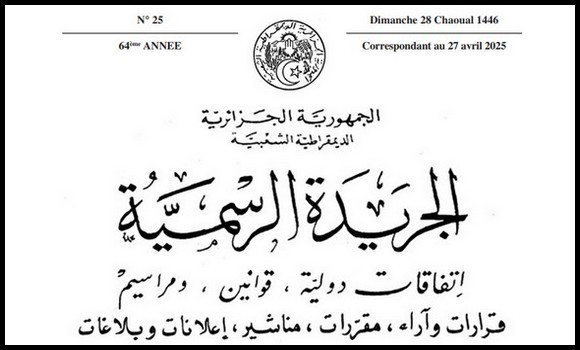 N° 25
Dimanche 28 Chaoual 1446
64ème ANNEE
Correspondant au 27 avril 2025
الجمهورية الجزائرية
الديمقراطية الشعبية
الجريدة الرسمية
إتفاقات دولية ، قوانين ، ومراسيم
قرارات وآراء ، مقررات ، مناشير ، إعلانات وبلاغات